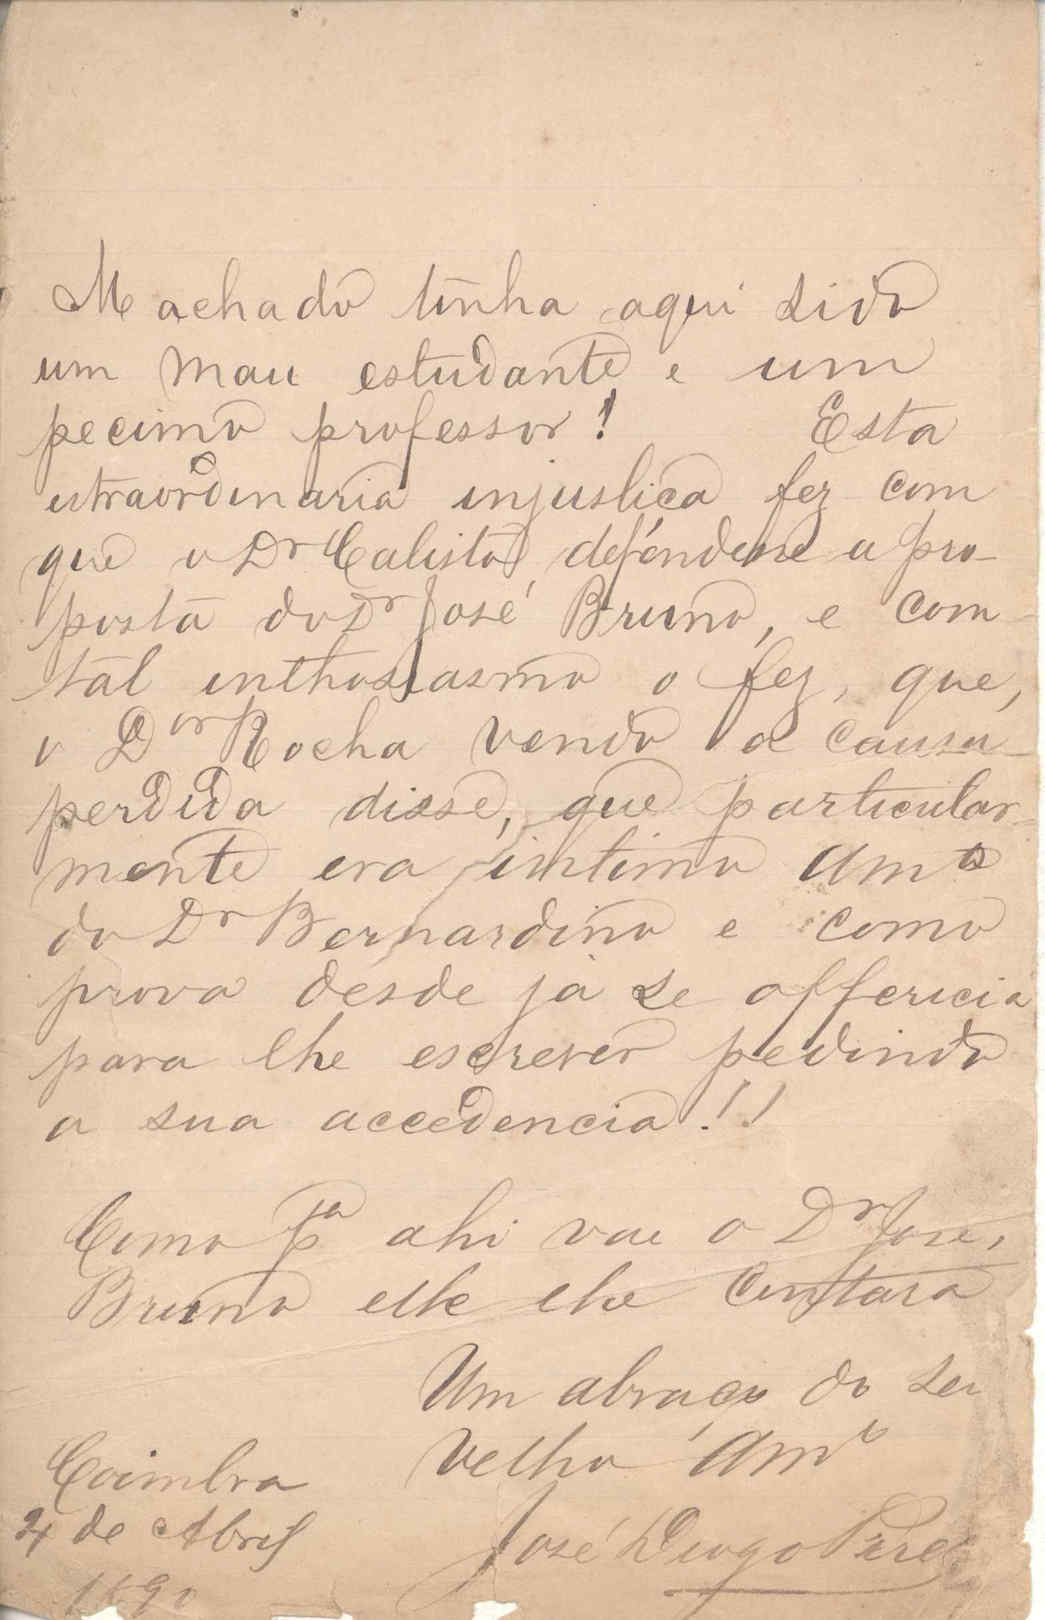 Machado tinha aqui sido
um mau estudante e um
pecimo professor! Esta
extraordinaria injustica fez com
que o Dr Calisto defendesse a pro-
posta do Dr José Bruno, e com
tal inthosiasmo o fez, que,
o Dor Rocha vendo a causa
perdida disse, que particular-
mente era intimo Amo
do Dr Bernardino e como
prova desde já se offericia
para lhe escrever pedindo
a sua accedencia!!
Como pa ahi vae o Dr José,
Bruno elle lhe contara
Um abraço do seu
velho Amo
Coimbra
de Abril
1890
José Diogo Pires